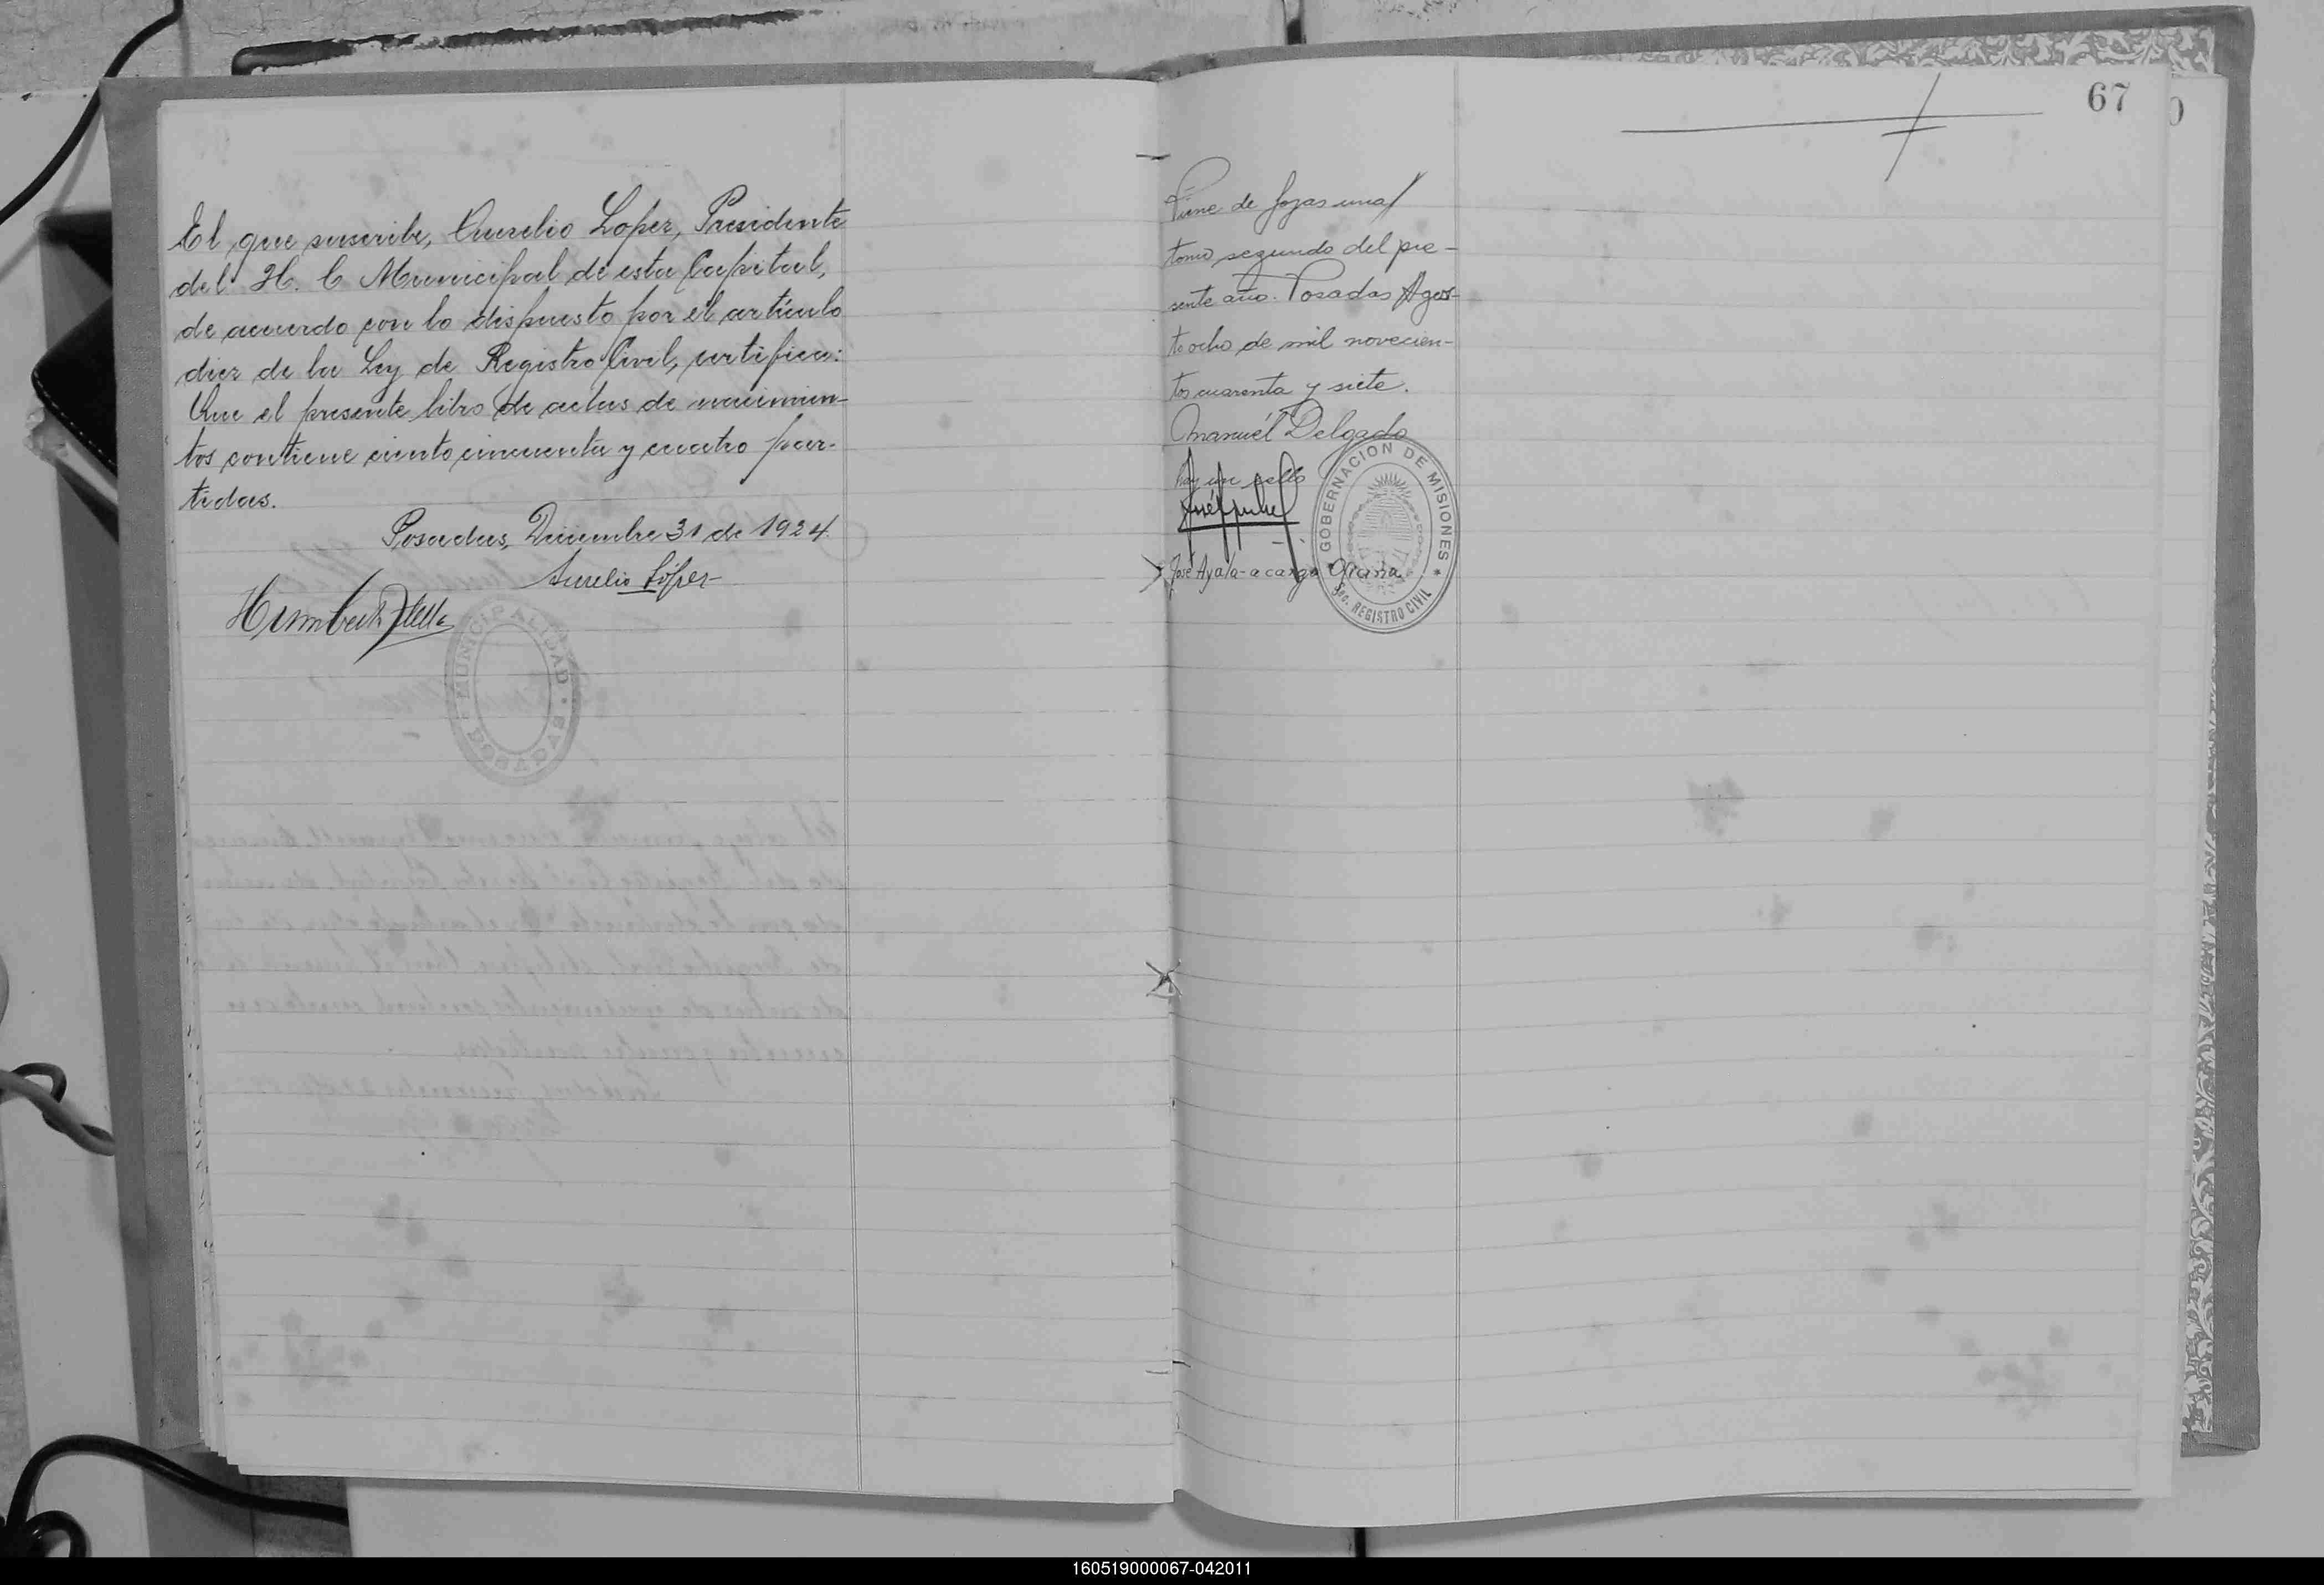 El que suscribe, Aurelio Lopez, Presidente
del H. C Municipal de esta Capital,
de acuerdo con lo dispuesto por el artículo
diez de la Ley de Registro Civil, certifica:
Que el presente libro de actas de nacimien-
tos contiene ciento cincuenta y cuatro par-
tidas.
Posadas, Diciembre 31 de 1924.
Aurelio López
Humberto
MUNICIPALIDAD
POSADAS
67
Viene de fojas una/
tomo segundo del pre-
sente año. Posadas Agos-
to ocho de mil novecien-
tos cuarenta y siete.
Manuél Delgado
hay un sello
José Ayala - a cargo Oficina
GOBERNACION DE MISIONES
Sec. REGISTRO CIVIL
160519000067-042011